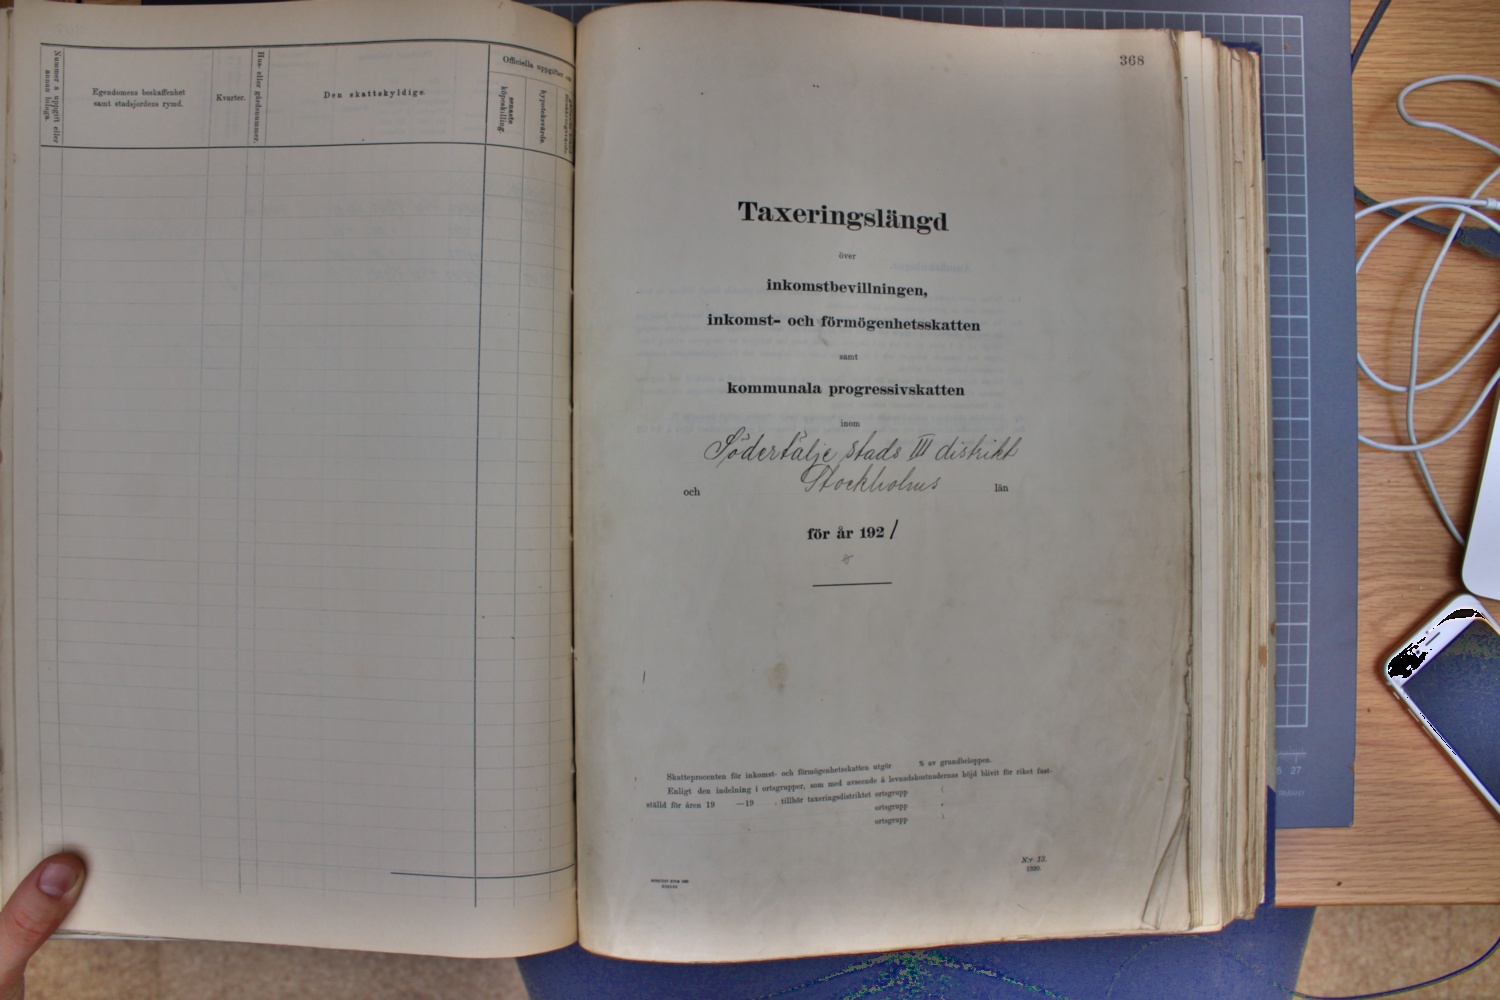 Nummer å uppgift eller
annan bilaga.
Egendomens beskaffenhet
samt stadsjordens rymd.
Kvarter.
Hus- eller gårdsnummer.
Den skattskyldige.
Officiella uppgifter
senaste
köpeskilling.
hypoteksvärde.
368
Taxeringslängd
över
inkomstbevillningen,
inkomst- och förmögenhetsskatten
samt
kommunala progressivskatten
inom
Södertälje stads III distrikt
och Stockholms län
för år 1921
Skatteprocenten för inkomst- och förmögenhetsskatten utgör % av grundbeloppen.
Enligt den indelning i ortsgrupper, som med avseende å levnadskostnadernas höjd blivit för riket fast-
ställd för åren 19 —19 , tillhör taxeringsdistriktet ortsgrupp
ortsgrupp
ortsgrupp
N:r 13.
1920.
27